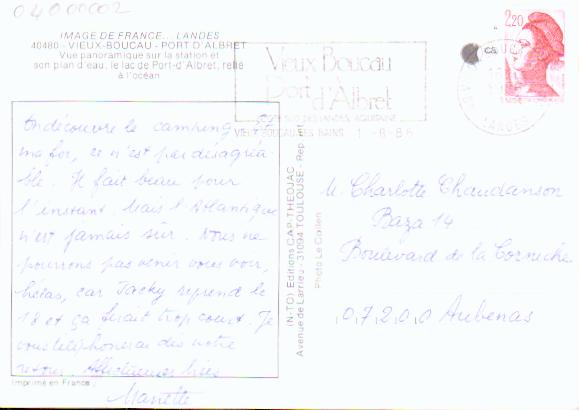 04000002
IMAGE DE FRANCE... LANDES
40480 - VIEUX-BOUCAU - PORT D'ALBRET
Vue panoramique sur la station et
son plan d'eau, le lac de Port-d'Albret, relié
à l'océan
2,20
Vieux Boucau
Port
d'Albret
VIEUX BOUCAU LES BAINS 1-8-86
LANDES
On découvre le camping et
ma foi, ce n'est pas désagréa
ble. Il fait beau pour
l'instant. Mais l'Atlantique
n'est jamais sûr. Nous ne
pourrons pas venir vous voir,
hélas, car Jacky reprend le
18 et ça ferait trop court. Je
vous téléphonerai dès notre
retour. Affectueuses bises
Manette
Imprimé en France
(IN-TO) Editions CAP-THEOJAC
Avenue de Larrieu - 31094 TOULOUSE - Rep. Int.
Photo Le Collen
M. Charlotte Chaudanson
Baza 14
Boulevard de la Corniche
07200 Aubenas